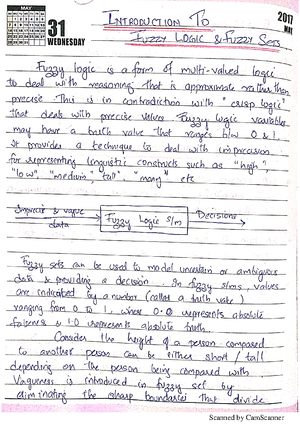 MAY
31
WEDNESDAY
INTRODUCTION TO
FUZZY LOGIC & FUZZY SETS
2017
MAY
Fuzzy logic is a form of multi-valued logic
to deal with reasoning that is approximate rather than
precise. This is in contradiction with "crisp logic"
that deals with precise values. Fuzzy logic variables
may have a truth value that ranges b/w 0 & 1.
It provides a technique to deal with imprecision
for representing linguistic constructs such as "high",
"low", "medium", "tall", "many" etc
Imprecise & vague
data
Fuzzy Logic S/m
Decisions
Fuzzy sets can be used to model uncertain or ambiguous
data & providing a decision. In fuzzy s/ms, values
are indicated by a number (called a truth value)
ranging from 0 to 1, where 0.0 represents absolute
falseness & 1.0 represents absolute truth.
Consider the height of a person compared
to another person can be either short / tall
depending on the person being compared with
Vagueness is introduced in fuzzy set by
eliminating the sharp boundaries that divide
Scanned by CamScanner